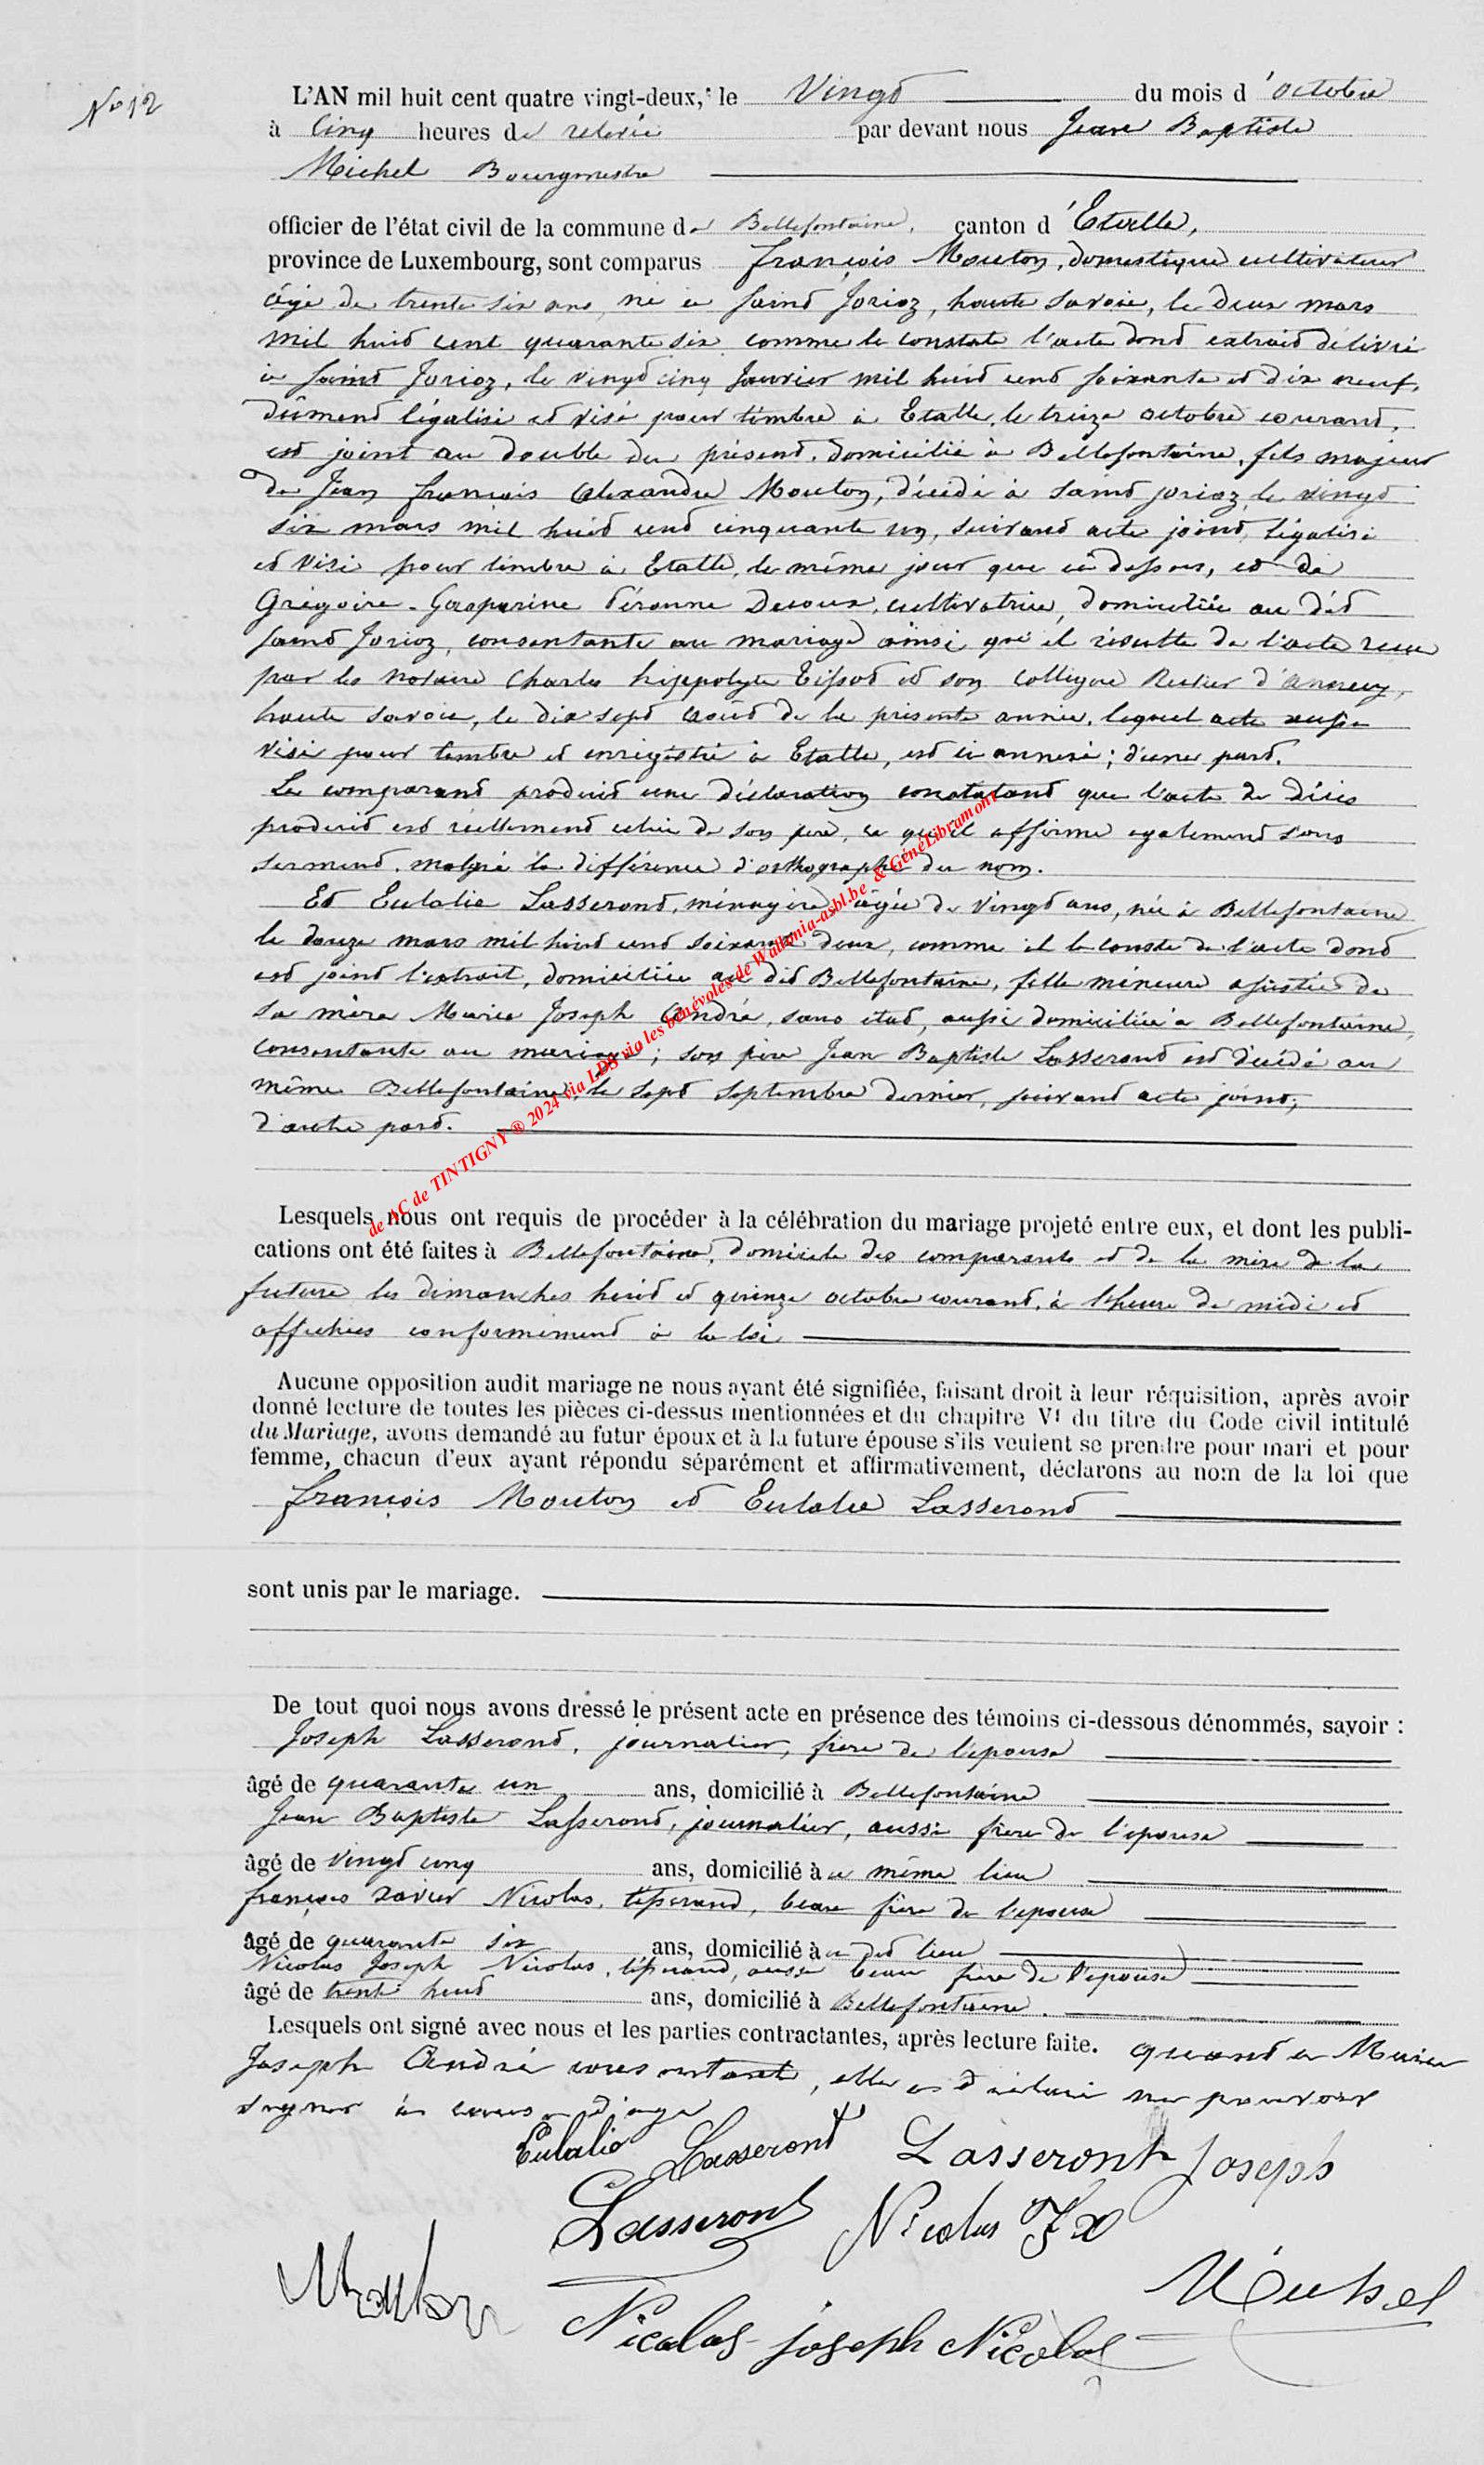 No 12
L'AN mil huit cent quatre vingt-deux, le Vingt du mois d'octobre
à Cinq heures de relevée par devant nous Jean Baptiste
Michel Bourgmestre
officier de l'état civil de la commune de Bellefontaine, canton d'Etalle,
province de Luxembourg, sont comparus françois Mouton, domestique cultivateur
âgé de trente six ans, né à saint Jorioz, haute Savoie, le deux mars
mil huit cent quarante six comme le constate l'acte dont extrait délivré
à saint Jorioz, le vingt cinq Janvier mil huit cent soixante et dix neuf,
dûment légalisé et visé pour timbre à Etalle, le treize octobre courant,
est joint au double du présent, domicilié à Bellefontaine, fils majeur
de Jean françois Alexandre Mouton, décédé à saint jorioz le vingt
six mars mil huit cent cinquante un, suivant acte joint, légalisé
et visé pour timbre à Etalle, le même jour que ci dessus, et de
Grégoire-Gasparine Péronne Decoux, cultivatrice, domiciliée au dit
saint Jorioz, consentante au mariage ainsi qu'il résulte de l'acte recu
par les notaire Charles hippolyte Tissot et son collègue d'annecy,
haute savoie, le dix sept août de la présente année, lequel acte aussi
visé pour timbre et enregistré à Etalle, est ci annexé; d'une part.
Le comparant produit une déclaration constatant que l'acte de décès
produit est réellement celui de son père, ce qu'il affirme également sous
serment, malgré la différence d'orthographe du nom.
Et Eulalie Lasseront, ménagère âgée de vingt ans, née à Bellefontaine
le douze mars mil huit cent soixante deux, comme il le conste de l'acte dont
est joint l'extrait, domiciliée au dit Bellefontaine, fille mineure assistée de
sa mère Marie Joseph André, sans état, aussi domiciliée à Bellefontaine,
consentante au mariage; son père Jean Baptiste Lasseront est décédé au
même Bellefontaine, le sept septembre dernier, suivant acte joint;
d'autre part.
Lesquels nous ont requis de procéder à la célébration du mariage projeté entre eux, et dont les publi-
cations ont été faites à Bellefontaine, domicile des comparants et de la mère de la
future les dimanches huit et quinze octobre courant, à l'heure de midi et
affichées conformément à la loi
Aucune opposition audit mariage ne nous ayant été signifiée, faisant droit à leur réquisition, après avoir
donné lecture de toutes les pièces ci-dessus mentionnées et du chapitre VI du titre du Code civil intitulé
du Mariage, avons demandé au futur époux et à la future épouse s'ils veulent se prendre pour mari et pour
femme, chacun d'eux ayant répondu séparément et affirmativement, déclarons au nom de la loi que
françois Mouton et Eulalie Lasseront
sont unis par le mariage.
De tout quoi nous avons dressé le présent acte en présence des témoins ci-dessous dénommés, savoir :
Joseph Lasseront, journalier, frère de l'épouse
âgé de quarante un ans, domicilié à Bellefontaine
Jean Baptiste Lasseront, journalier, aussi frère de l'épouse
âgé de vingt cinq ans, domicilié à ce même lieu
françois xavier Nicolas, tisserand, beau frère de l'épouse
âgé de quarante six ans, domicilié à ce dit lieu
Nicolas Joseph Nicolas, tisserand, aussi beau frère de l'épouse
âgé de trente huit ans, domicilié à Bellefontaine.
Lesquels ont signé avec nous et les parties contractantes, après lecture faite. quant à Marie
Joseph André consentante, elle a déclaré ne pouvoir
signer à cause d'age
Eulalie Lasseront Lasseront Joseph
Lasseront Nicolas F X
Mouton Michel
Nicolas-joseph Nicolas
de AC de TINTIGNY ® 2024 via LDS via les bénévoles de Wallonia-asbl.be & GénéLibramont